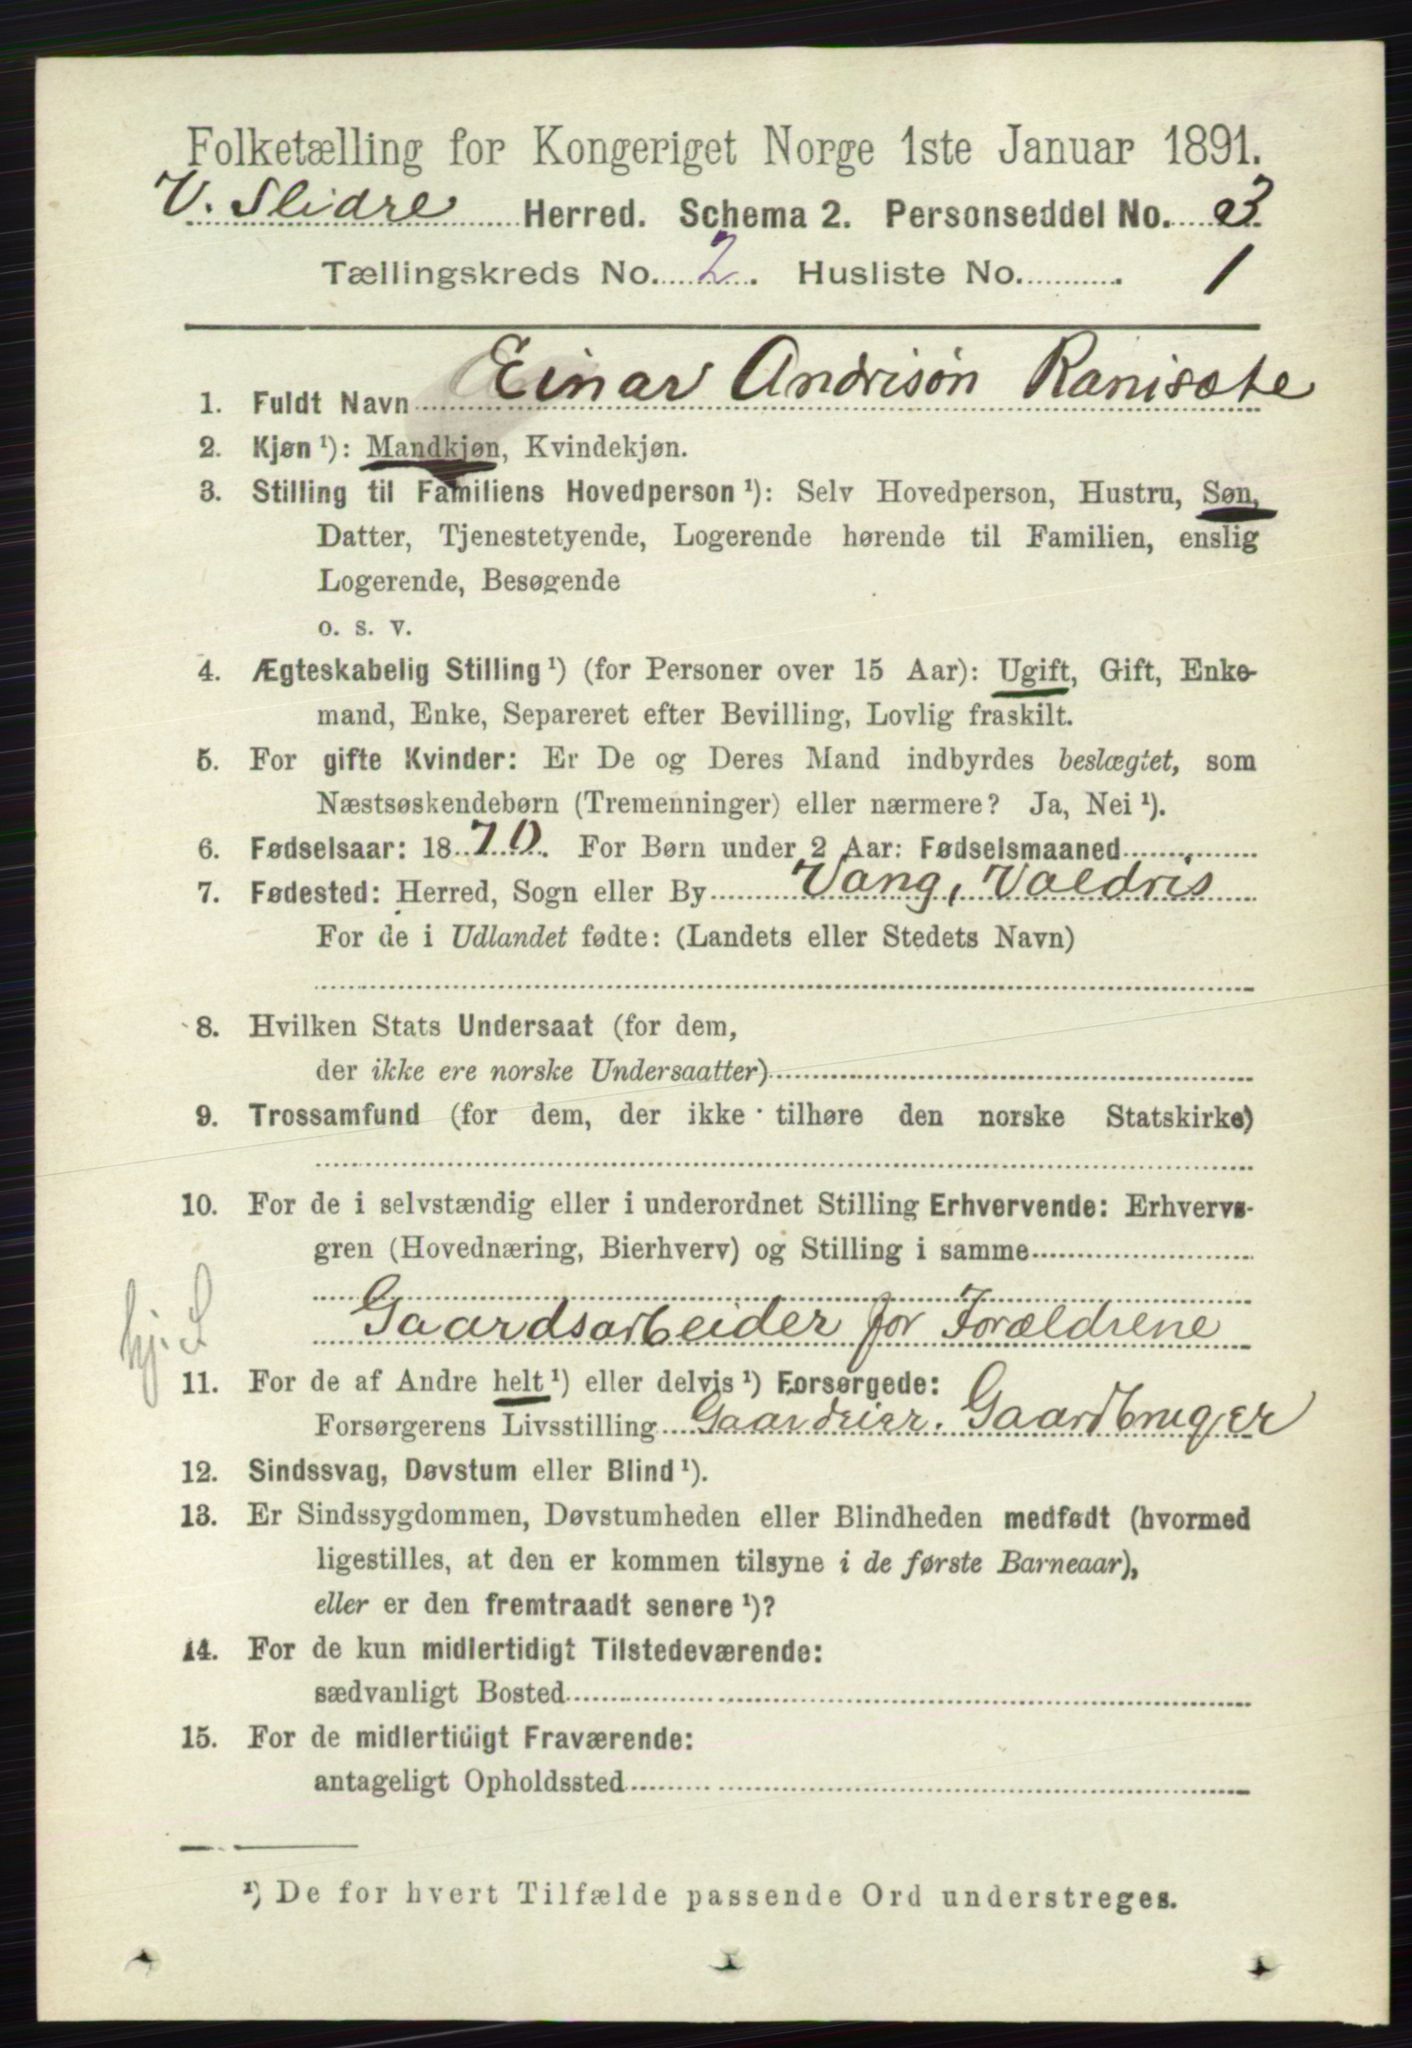 Folketælling for Kongeriget Norge 1ste Januar 1891.
V. Slidre Herred. Schema 2. Personseddel No. 3
Tællingskreds No. 2. Husliste No. 1
1. Fuldt Navn Einar Andrisøn Ranisate
2. Kjøn ¹): Mandkjøn, Kvindekjøn.
3. Stilling til Familiens Hovedperson ¹): Selv Hovedperson, Hustru, Søn,
Datter, Tjenestetyende, Logerende hørende til Familien, enslig
Logerende, Besøgende
o. s. v.
4. Ægteskabelig Stilling ¹) (for Personer over 15 Aar): Ugift, Gift, Enke-
mand, Enke, Separeret efter Bevilling, Lovlig fraskilt.
5. For gifte Kvinder: Er De og Deres Mand indbyrdes beslægtet, som
Næstsøskendebørn (Tremenninger) eller nærmere? Ja, Nei ¹).
6. Fødselsaar: 1870. For Børn under 2 Aar: Fødselsmaaned
7. Fødested: Herred, Sogn eller By Vang, Valdris
For de i Udlandet fødte: (Landets eller Stedets Navn)
8. Hvilken Stats Undersaat (for dem,
der ikke ere norske Undersaatter)
9. Trossamfund (for dem, der ikke tilhøre den norske Statskirke)
10. For de i selvstændig eller i underordnet Stilling Erhvervende: Erhvervs-
gren (Hovednæring, Bierhverv) og Stilling i samme
Gaardsarbeider for Forældrene
11. For de af Andre helt ¹) eller delvis ¹) Forsørgede:
Forsørgerens Livsstilling Gaardeier. Gaardbruger
12. Sindssvag, Døvstum eller Blind ¹).
13. Er Sindssygdommen, Døvstumheden eller Blindheden medfødt (hvormed
ligestilles, at den er kommen tilsyne i de første Barneaar),
eller er den fremtraadt senere ¹)?
14. For de kun midlertidigt Tilstedeværende:
sædvanligt Bosted
15. For de midlertidigt Fraværende:
antageligt Opholdssted
¹) De for hvert Tilfælde passende Ord understreges.